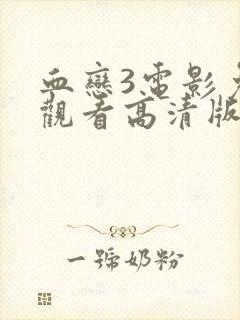 血戀3電影免
觀看高清版
一號奶粉